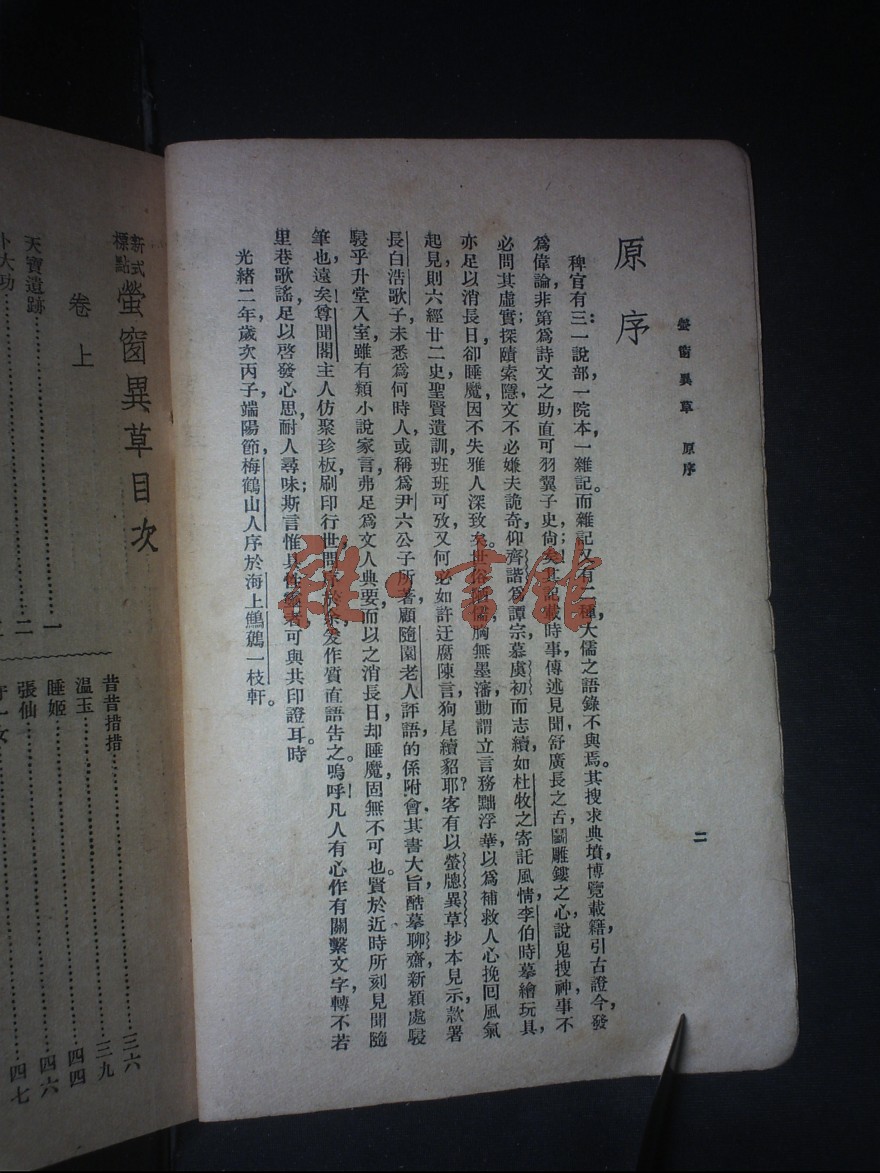 螢窗異草 原序
二
原序
稗官有三：一說部，一院本，一雜記。而雜記又有二種，大儒之語錄不與焉。其搜求典墳，博覽載籍，引古證今，發
為偉論，非第為詩文之助，直可羽翼子史，尙矣；其記載時事，傳述見聞，舒廣長之舌，鬭雕鏤之心，說鬼搜神，事不
必問其虛實；探賾索隱，文不必嫌夫詭奇，仰齊諧為譚宗，慕虞初而志續，如杜牧之寄託風情，李伯時摹繪玩具，
亦足以消長日，卻睡魔，因不失雅人深致矣。世俗陋儒，胸無墨瀋，動謂立言務黜浮華，以為補救人心，挽囘風氣
起見，則六經廿二史，聖賢遺訓，班班可攷，又何必如許迂腐陳言，狗尾續貂耶？客有以螢牕異草抄本見示，款署
長白浩歌子，未悉為何時人，或稱為尹六公子所著，顧隨園老人評語，的係附會，其書大旨，酷摹聊齋，新穎處駸
駸乎升堂入室，雖有類小說家言，弗足為文人典要，而以之消長日，却睡魔，固無不可也。賢於近時所刻見聞隨
筆也遠矣！尊聞閣主人仿聚珍板，刷印行世，問序於余，爰作質直語告之。嗚呼！凡人有心作有關繫文字，轉不若
里巷歌謠，足以啓發心思，耐人尋味；斯言惟具性靈者可與共印證耳。時
光緒二年，歲次丙子，端陽節，梅鶴山人序於海上鷦鷯一枝軒。
新式標點 螢窗異草目次
卷上
天寶遺跡……一
卜大功……二
昔昔措措……三六
溫玉……三九
睡姬……四四
張仙……四六
四七